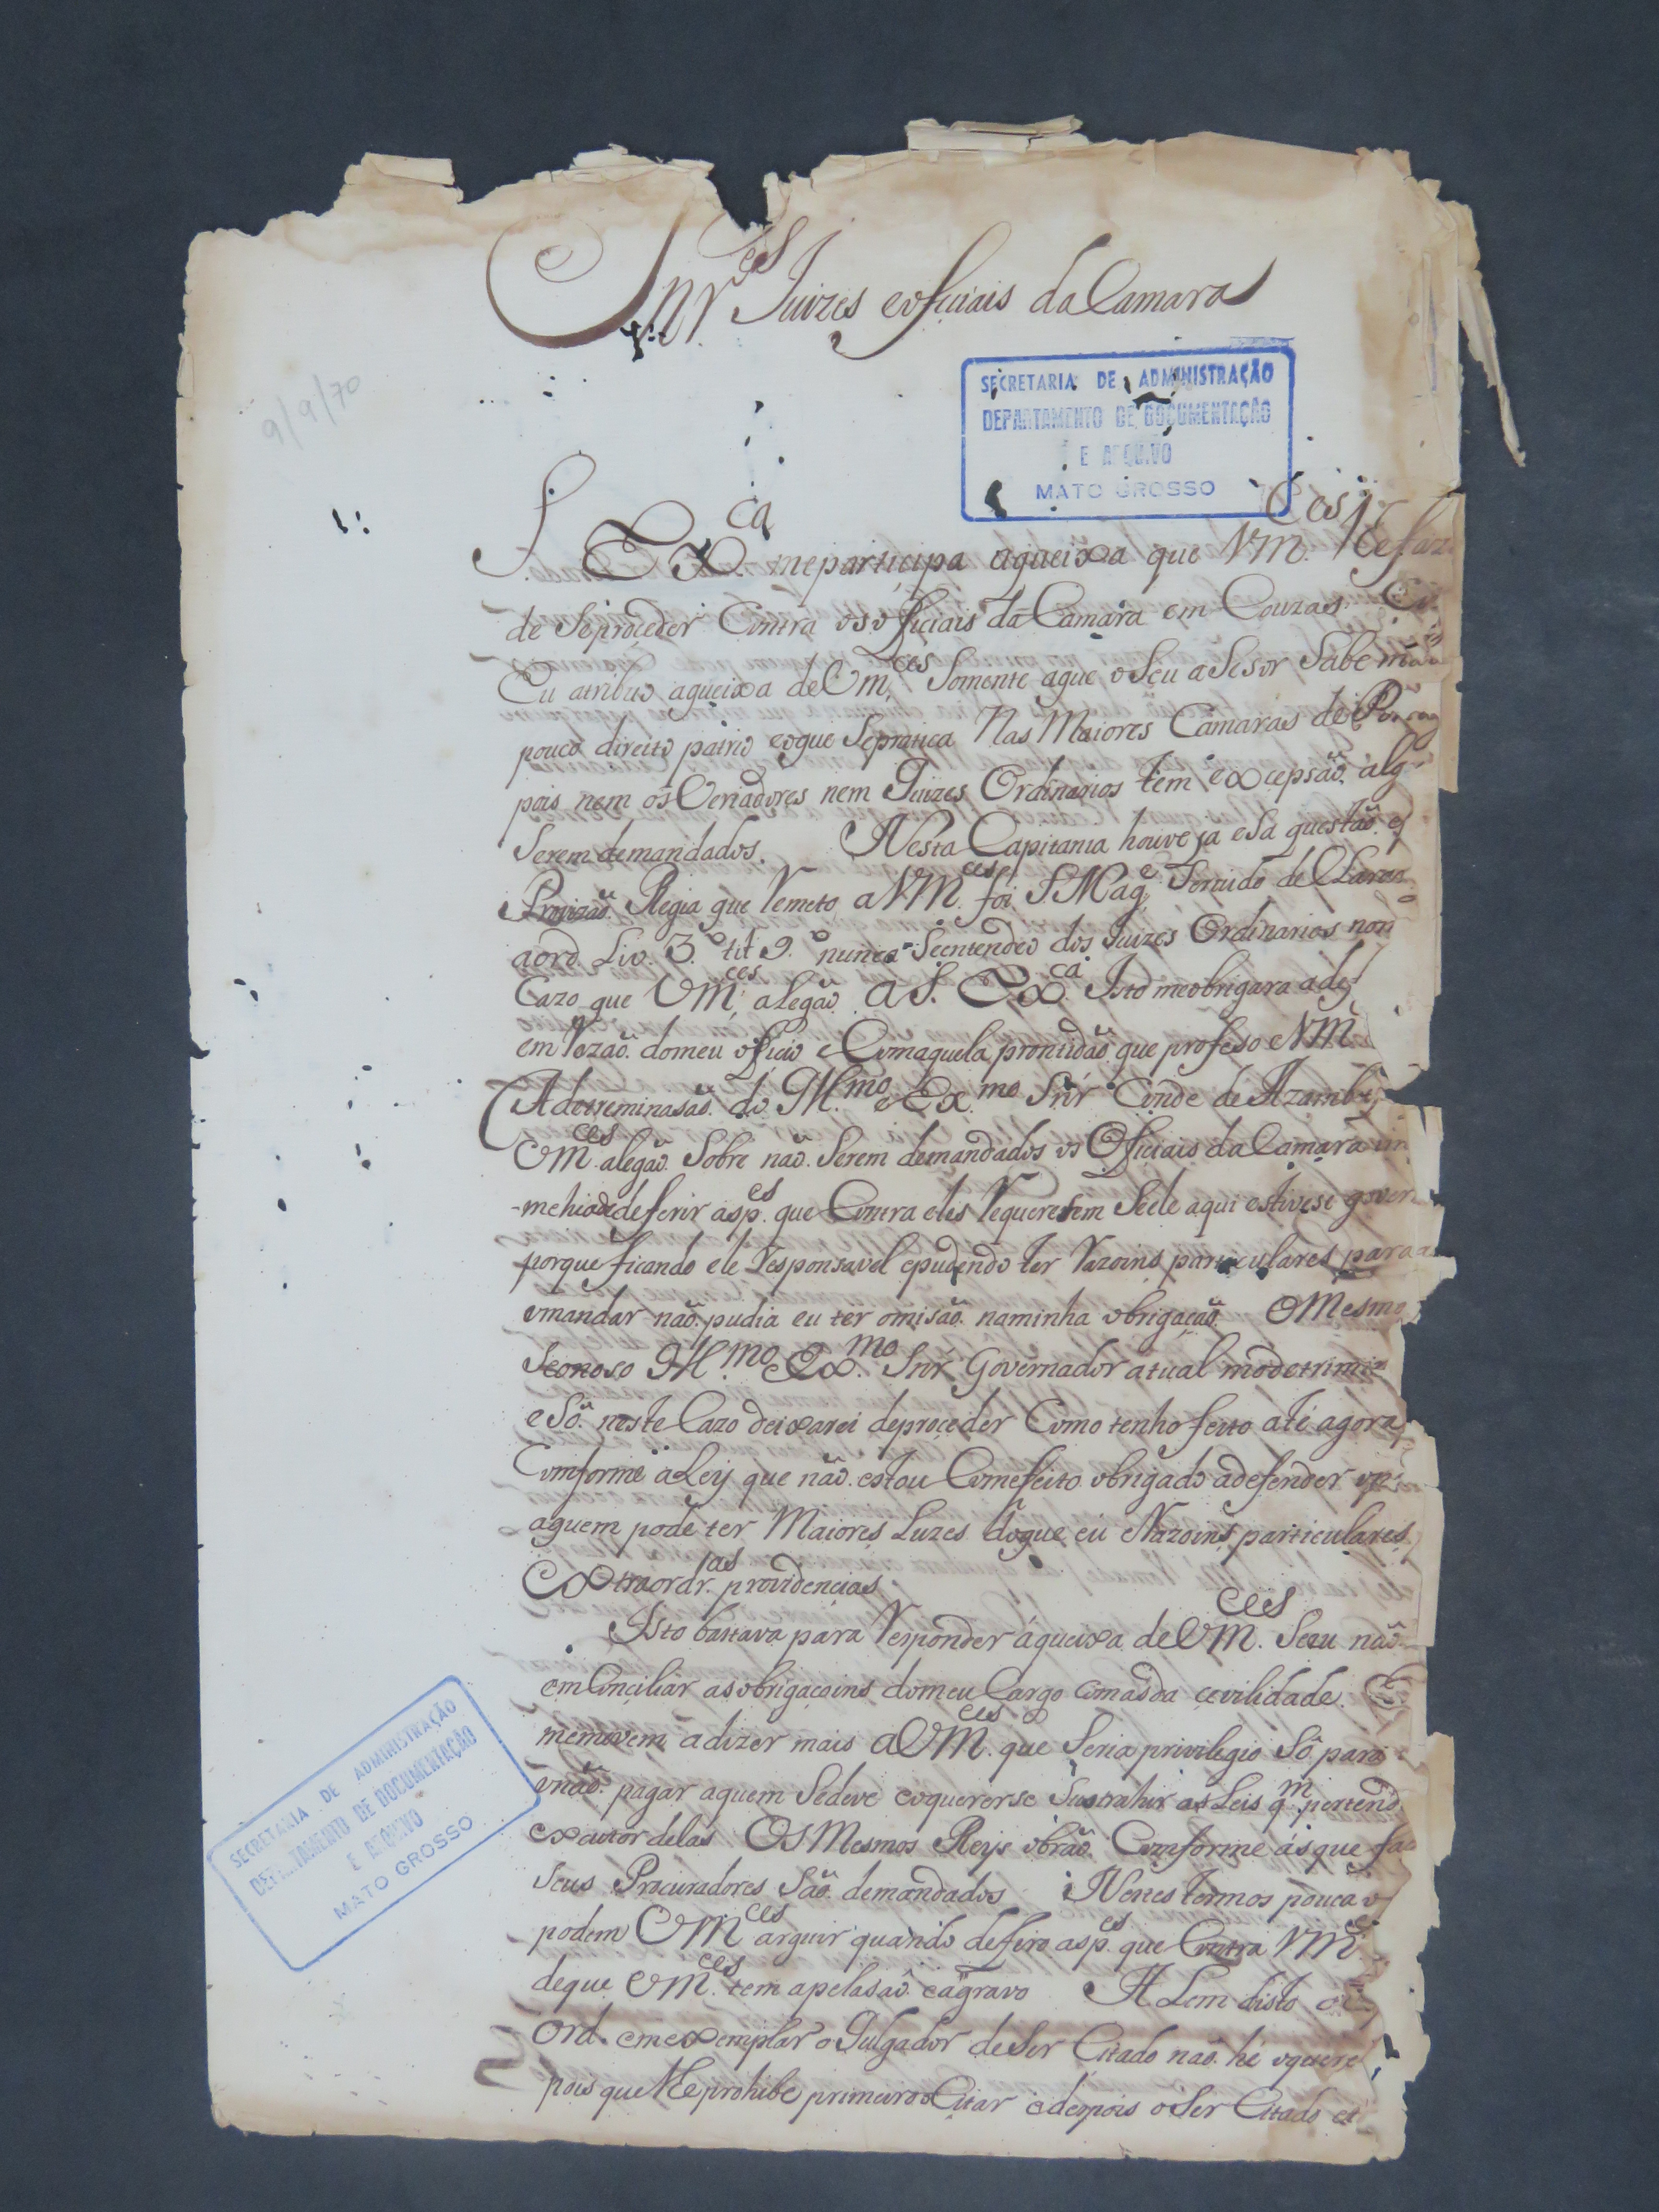 Snr.es Juizes eoficiais da Camara
9/9/70
SECRETARIA DE ADMINISTRAÇÃO
DEPARTAMENTO DE DOCUMENTAÇÃO
E ARQUIVO
MATO GROSSO
S. Ex.ca meparticipa aqueixa que VM.ces lhefaz
de Seproçeder Contra osoficiais da Camara em Couzas
Eu atribuo aqueixa de Vm.ces Somente aque oSeu aSesor Sabe
pouco direito patrio eoque Sepratica Nas Maiores Camaras de
pois nem os Veriadores nem Juizes Ordinarios tem excepsaõ. alg
Serem demandados. Nesta Capitania houve ja eSa questaõ. e
Provizaõ. Regia que Remeto aVM.ces foi S Mag.e Servido de
aord. Liv. 3.º tit 9.º nunca Seentendeo dos Juizes Ordinarios nem
Cazo que VM.ces alegaõ. aS. Ex.ca Isto meobrigara adef
em Rezaõ. domeu oficio e Comaquela prontidaõ. que profeso eVM
A detreminasaõ. do Ill.mo e Ex.mo Snr Conde de Azambu
VM.ces alegaõ. Sobre naõ. Serem demandados os Oficiais da Camara
-mehiadedeferir asp.es que Contra eles Requeresem Seele aqui estivese govern
porque ficando ele Responsavel epudendo ter Razoins particulares para
omandar naõ. pudia eu ter omisaõ. naminha obrigaçaõ. OMesmo
Seonoso Ill.mo Ex.mo Snr. Governador atual modetrimi
e Só neste Cazo deixarei deproçeder Como tenho feito até agora
Comforme aLeij que naõ. estou Comefeito obrigado adefender
aquem pode ter Maiores Luzes doque eu eRazoins particulares
Extraordr.ias providencias.
Isto bastava para Responder áqueixa de VM.ces Seeu naõ.
em Conçiliar asobrigaçoins domeu Cargo comasda çevilidade.
memovem adizer mais aVM.ces que Seria privilegio Só para
onaõ. pagar aquem Sedeve eoquererse Sustrahir as Leis q.m pertend
exautor delas OS Mesmos Reijs obraõ. Comforme ás que
Seus Procuradores Saõ. demandados Nestes termos pouca
podem VM.ces arguir quando defiro asp.es que Contra VM
deque VM.ces tem apelasaõ. eagravo ALem disto
Ord. emexemplar o Julgador deSer Citado naõ. hé
pois que lhe prohibe primeiro oCitar edepois oSer Citado
SECRETARIA DE ADMINISTRAÇÃO
DEPARTAMENTO DE DOCUMENTAÇÃO
E ARQUIVO
MATO GROSSO